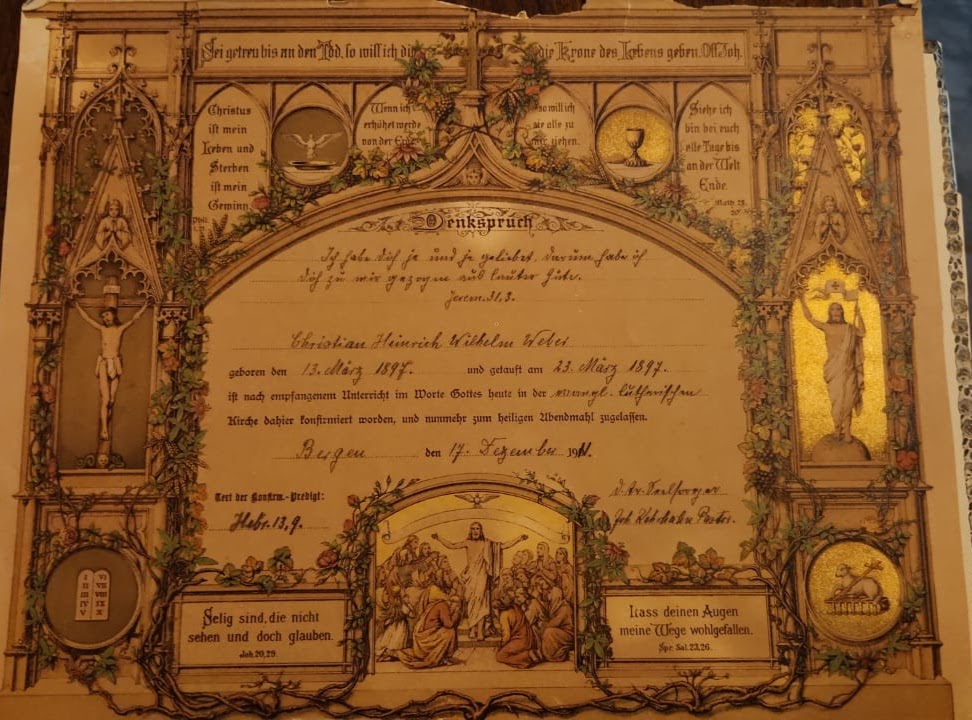 Sei getreu bis an den Tod, so will ich dir die Krone des Lebens geben. Off. Joh.
Christus
ist mein
Leben und
Sterben
ist mein
Gewinn
Phil.
Wenn ich
erhöhet werde
von der Erde
so will ich
sie alle zu
mir ziehen.
Siehe ich
bin bei euch
alle Tage bis
an der Welt
Ende.
Math. 28.
20.
Denkspruch
Ich habe dich je und je geliebet, darum habe ich
dich zu mir gezogen aus lauter Güte.
Jerem. 31, 3.
Christian Heinrich Wilhelm Weber
geboren den 13. März 1897. und getauft am 23. März 1897.
ist nach empfangenem Unterricht im Worte Gottes heute in der evangl. lutherischen
Kirche dahier konfirmiert worden, und nunmehr zum heiligen Abendmahl zugelassen.
Bergen den 17. Dezember 1911.
Text der Konfirm.-Predigt:
Hebr. 13, 9.
Seelsorger
Joh. Pastor.
I VI
II VII
III VIII
IV IX
V X
Selig sind, die nicht
sehen und doch glauben.
Joh. 20, 29.
Lass deinen Augen
meine Wege wohlgefallen.
Spr. Sal. 23, 26.